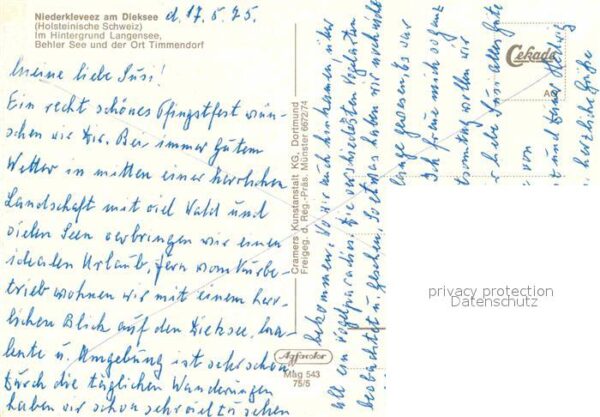 Niederkleveez am Dieksee
(Holsteinische Schweiz)
Im Hintergrund Langensee,
Behler See und der Ort Timmendorf
d. 17.5.75.
Meine liebe Susi!
Ein recht schönes Pfingstfest wün-
schen wir Dir. Bei immer gutem
Wetter in mitten einer herrlichen
Landschaft mit viel Wald und
vielen Seen verbringen wir einen
idealen Urlaub, fern vom Kurbe-
trieb wohnen wir mit einem herr-
lichen Blick auf den Dieksee.
lente u. Umgebung ist sehr schön
Durch die täglichen Wanderungen
haben wir schon sehr viel zu sehen
bekommen. Wo wir auch hin kamen, über
all ein Vogelparadies. Die verschiedensten Vogelarten
beobachtet u. gesehen. So etwas haben wir noch nicht
lange gewesen es war
Ich freue mich so ganz
wollen wir
liebe Susi alles Gute
von
und Deiner
herzliche Grüße
Cramers Kunstanstalt KG, Dortmund
Freigeg. d. Reg.-Präs. Münster 6672/74
Cekade
Agfacolor
Mag 543
75/5
privacy protection
Datenschutz